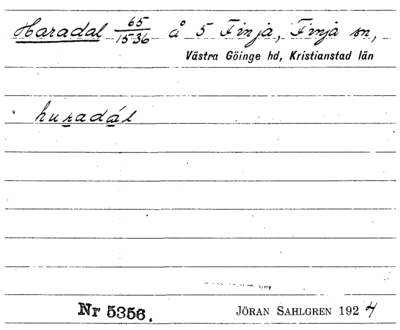 Haradal 65/1536 å 5 Finja, Finja sn,
Västra Göinge hd, Kristianstad län
huradál
Nr 5356.
JÖRAN SAHLGREN 1924